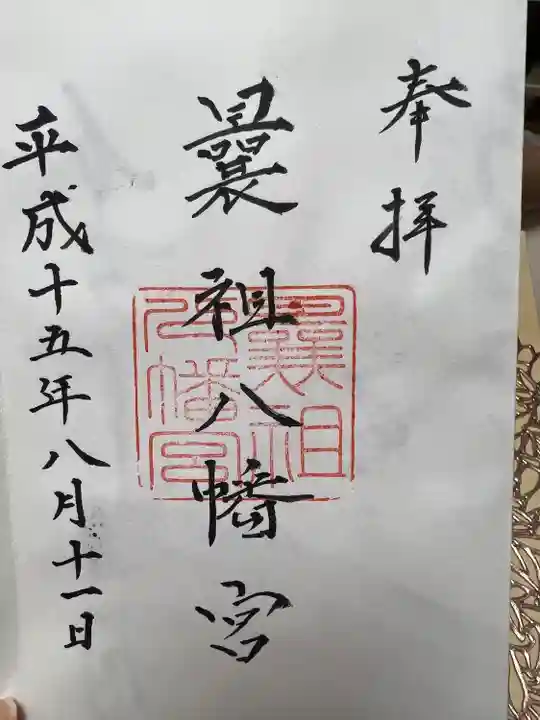 奉拝
曩祖八幡宮
平成十五年八月十一日
曩祖
八幡宮